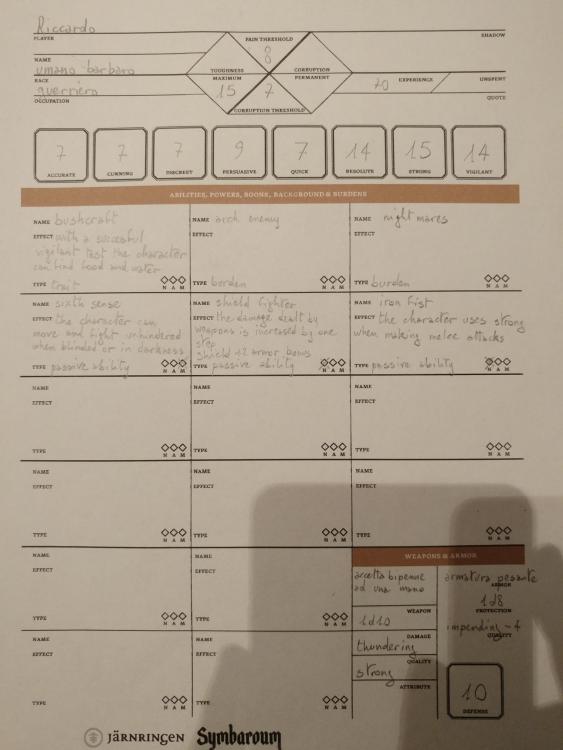 Riccardo
PLAYER
SHADOW
NAME
umano barbaro
RACE
guerriero
OCCUPATION
PAIN THRESHOLD
8
TOUGHNESS
CORRUPTION
MAXIMUM
PERMANENT
15
7
CORRUPTION THRESHOLD
EXPERIENCE
UNSPENT
QUOTE
7 7 7 9 7 14 15 14
ACCURATE CUNNING DISCREET PERSUASIVE QUICK RESOLUTE STRONG VIGILANT
ABILITIES, POWERS, BOONS, BACKGROUND & BURDENS
NAME bushcraft
EFFECT with a succesful
vigilant test the character
can find food and water
TYPE trait
N A M
NAME arch enemy
EFFECT
TYPE burden
N A M
NAME nightmares
EFFECT
TYPE burden
N A M
NAME sixth sense
EFFECT the character can
move and fight unhindered
when blinded or in darkness
TYPE passive ability
N A M
NAME shield fighter
EFFECT the damage dealt by
weapons is increased by one
step
shield +2 armor bonus
TYPE passive ability
N A M
NAME iron fist
EFFECT the character uses strong
when making melee attacks
TYPE passive ability
N A M
NAME
EFFECT
TYPE
N A M
NAME
EFFECT
TYPE
N A M
NAME
EFFECT
TYPE
N A M
NAME
EFFECT
TYPE
N A M
NAME
EFFECT
TYPE
N A M
NAME
EFFECT
TYPE
N A M
NAME
EFFECT
TYPE
N A M
NAME
EFFECT
TYPE
N A M
WEAPONS & ARMOR
accetta bipenne
ad una mano
WEAPON
1d10
DAMAGE
thundering
QUALITY
strong
ATTRIBUTE
armatura pesante
ARMOR
1d8
PROTECTION
impending -4
QUALITY
10
DEFENSE
NAME
EFFECT
TYPE
N A M
NAME
EFFECT
TYPE
N A M
JÄRNRINGEN Symbaroum